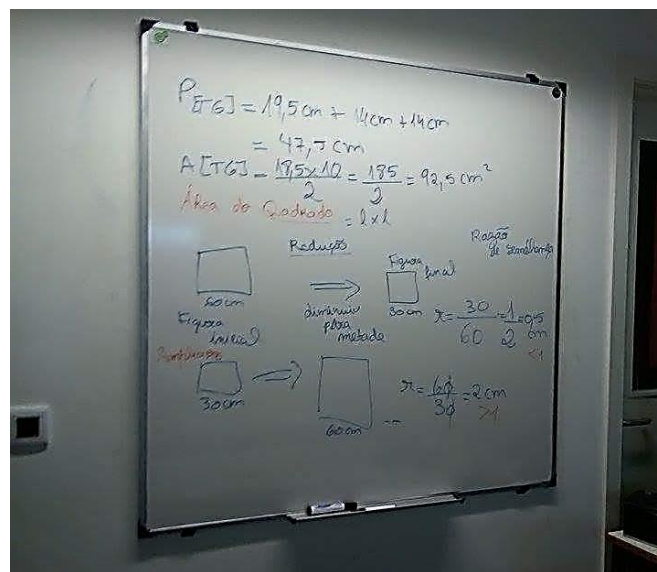 P[TG] = 19,5cm + 14cm + 14cm
= 47,5cm
A[TG] = 18,5 x 10 / 2 = 185 / 2 = 92,5 cm²
Área do Quadrado = l x l
Redução
Razão de semelhança
Figura final
60cm
30cm
Figura inicial
diminuiu para metade
r = 30 / 60 = 1 / 2 = 0,5 cm
<1
Ampliação
30cm
60cm
r = 60 / 30 = 2 cm
>1